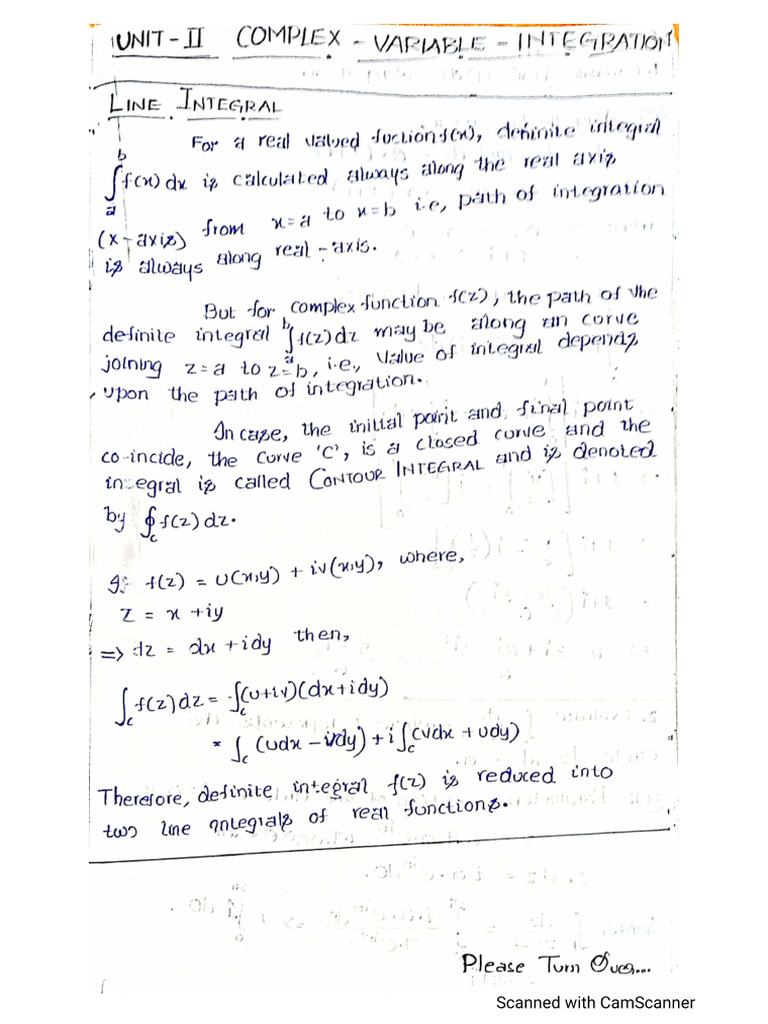 UNIT - II COMPLEX - VARIABLE - INTEGRATION
LINE INTEGRAL
For a real valued fuction f(x), definite integral
∫_a^b f(x) dx is calculated, always along the real axis
(x-axis) from x=a to x=b i.e, path of integration
is always along real-axis.
But for complex function f(z), the path of the
definite integral ∫_a^b f(z)dz may be along an curve
joining z=a to z=b, i.e., value of integral depends
upon the path of integration.
In case, the initial point and final point
co-incide, the curve 'C', is a closed curve and the
integral is called CONTOUR INTEGRAL and is denoted
by ∮_c f(z)dz.
If f(z) = u(x,y) + iv(x,y), where,
z = x + iy
=> dz = dx + idy then,
∫_c f(z)dz = ∫_c (u+iv)(dx+idy)
= ∫_c (udx - vdy) + i∫_c (vdx + udy)
Therefore, definite integral f(z) is reduced into
two line integrals of real functions.
Please Turn Over...
Scanned with CamScanner